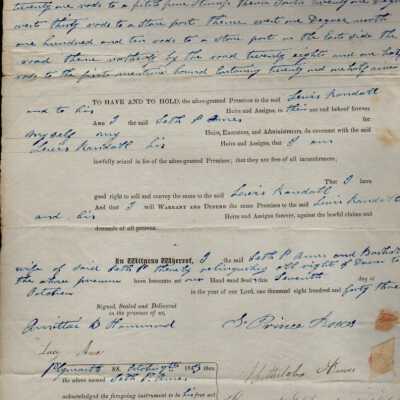 twenty one rods to a pitch pine Stump thence South twenty one Degrees
west thirty rods to a stone post thence west one Degree north
one hundred and ten rods to a stone post on the east side the
road thence northerly by the road twenty eight and one half
rods to the first mentioned bound containing twenty and one half acres
TO HAVE AND TO HOLD, the afore-granted Premises to the said Lewis Randall
and to his Heirs and Assigns, to their use and behoof forever
AND I the said Seth P Ames for
myself my Heirs, Executors, and Administrators, do covenant with the said
Lewis Randall his Heirs and Assigns, that I am
lawfully seized in fee of the afore-granted Premises; that they are free of all incumbrances;
That I have
good right to sell and convey the same to the said Lewis Randall
And that I will WARRANT AND DEFEND the same Premises to the said Lewis Randall
and his Heirs and Assigns forever, against the lawful claims and
demands of all persons.
In Witness Whereof, I the said Seth P Ames and
wife of said Seth P thereby relinquishing all right of Dower to
the above premises have hereunto set our Hand and Seal this Seventh day of
October in the year of our Lord, one thousand eight hundred and forty three
Signed, Sealed and Delivered
in the presence of us,
D Hammond
S. Prince Ames
Lucy Ames
Plymouth SS. October 7th then
the above named Seth P. Ames
acknowledged the foregoing instrument to be his free act